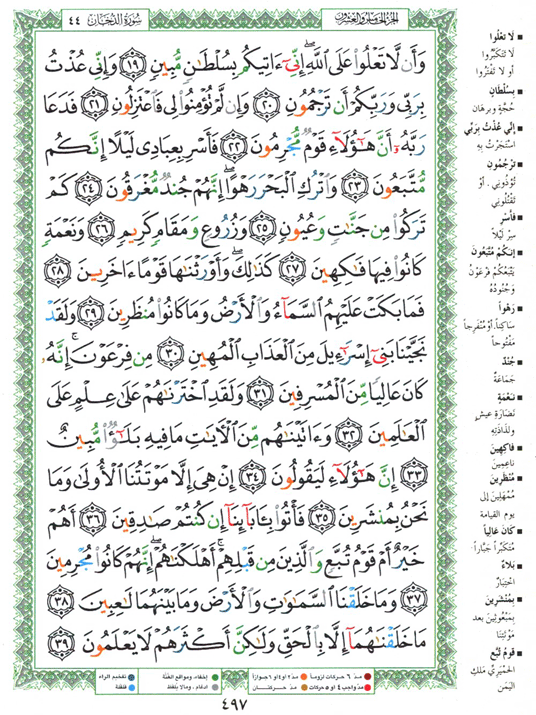 سُورَةُ الدُّخَانِ ٤٤
الجُزءُ الخَامِسُ والعِشرُون
وَأَن لَّا تَعْلُوا۟ عَلَى ٱللَّهِ ۖ إِنِّىٓ ءَاتِيكُم بِسُلْطَـٰنٍ مُّبِينٍ ١٩ وَإِنِّى عُذْتُ
بِرَبِّى وَرَبِّكُمْ أَن تَرْجُمُونِ ٢٠ وَإِن لَّمْ تُؤْمِنُوا۟ لِى فَٱعْتَزِلُونِ ٢١ فَدَعَا
رَبَّهُۥٓ أَنَّ هَـٰٓؤُلَآءِ قَوْمٌ مُّجْرِمُونَ ٢٢ فَأَسْرِ بِعِبَادِى لَيْلًا إِنَّكُم
مُّتَّبَعُونَ ٢٣ وَٱتْرُكِ ٱلْبَحْرَ رَهْوًا ۖ إِنَّهُمْ جُندٌ مُّغْرَقُونَ ٢٤ كَمْ
تَرَكُوا۟ مِن جَنَّـٰتٍ وَعُيُونٍ ٢٥ وَزُرُوعٍ وَمَقَامٍ كَرِيمٍ ٢٦ وَنَعْمَةٍ
كَانُوا۟ فِيهَا فَـٰكِهِينَ ٢٧ كَذَٰلِكَ ۖ وَأَوْرَثْنَـٰهَا قَوْمًا ءَاخَرِينَ ٢٨
فَمَا بَكَتْ عَلَيْهِمُ ٱلسَّمَآءُ وَٱلْأَرْضُ وَمَا كَانُوا۟ مُنظَرِينَ ٢٩ وَلَقَدْ
نَجَّيْنَا بَنِىٓ إِسْرَٰٓءِيلَ مِنَ ٱلْعَذَابِ ٱلْمُهِينِ ٣٠ مِن فِرْعَوْنَ ۚ إِنَّهُۥ
كَانَ عَالِيًا مِّنَ ٱلْمُسْرِفِينَ ٣١ وَلَقَدِ ٱخْتَرْنَـٰهُمْ عَلَىٰ عِلْمٍ عَلَى
ٱلْعَـٰلَمِينَ ٣٢ وَءَاتَيْنَـٰهُم مِّنَ ٱلْـَٔايَـٰتِ مَا فِيهِ بَلَـٰٓؤٌا۟ مُّبِينٌ
٣٣ إِنَّ هَـٰٓؤُلَآءِ لَيَقُولُونَ ٣٤ إِنْ هِىَ إِلَّا مَوْتَتُنَا ٱلْأُولَىٰ وَمَا
نَحْنُ بِمُنشَرِينَ ٣٥ فَأْتُوا۟ بِـَٔابَآئِنَآ إِن كُنتُمْ صَـٰدِقِينَ ٣٦ أَهُمْ
خَيْرٌ أَمْ قَوْمُ تُبَّعٍ وَٱلَّذِينَ مِن قَبْلِهِمْ ۚ أَهْلَكْنَـٰهُمْ ۖ إِنَّهُمْ كَانُوا۟ مُجْرِمِينَ
٣٧ وَمَا خَلَقْنَا ٱلسَّمَـٰوَٰتِ وَٱلْأَرْضَ وَمَا بَيْنَهُمَا لَـٰعِبِينَ ٣٨
مَا خَلَقْنَـٰهُمَآ إِلَّا بِٱلْحَقِّ وَلَـٰكِنَّ أَكْثَرَهُمْ لَا يَعْلَمُونَ ٣٩
لَا تَعْلُوا
لَا تَتَكَبَّرُوا
أو لا تَفْتَرُوا
بِسُلْطَانٍ
حُجَّةٍ وبرهان
إنِّي عُذْتُ بِرَبِّي
اسْتَجَرْتُ به
تَرْجُمُونِ
تُؤْذُونِي . أَوْ
تَقْتُلُونِي
فَأَسْرِ
سِرْ لَيْلاً
إنكُمْ مُتَّبَعُونَ
يَتْبَعُكُمْ فِرْعَوْنُ
وَجُنُودُهُ
رَهْواً
سَاكِناً . أَوْ مُنْفَرِجاً
مَفْتُوحاً
جُنْدٌ
جَمَاعَةٌ
نَعْمَةٍ
نَضَارَةِ عيش
ولَذَاذَتِهِ
فَاكِهِينَ
نَاعِمِينَ
مُنْظَرِينَ
مُمْهَلِينَ إلى
يوم القيامة
كَانَ عَالِياً
مُتَكَبِّراً جَبَّاراً
بَلاءٌ
اخْتِبَارٌ
بِمُنْشَرِينَ
بِمَبْعُوثِينَ بعد
مَوْتَتِنَا
قومُ تُبَّعٍ
الحِمْيَرِيِّ مَلكِ
اليَمَن
مدّ ٦ حركات لزوماً
مدّ ٢ أو ٤ أو ٦ جوازاً
إخفاء، ومواقع الغُنَّة
تفخيم الراء
مدّ واجب ٤ أو ٥ حركات
مدّ حركتان
إدغام ، ومالا يُلفَظ
قلقلة
٤٩٧